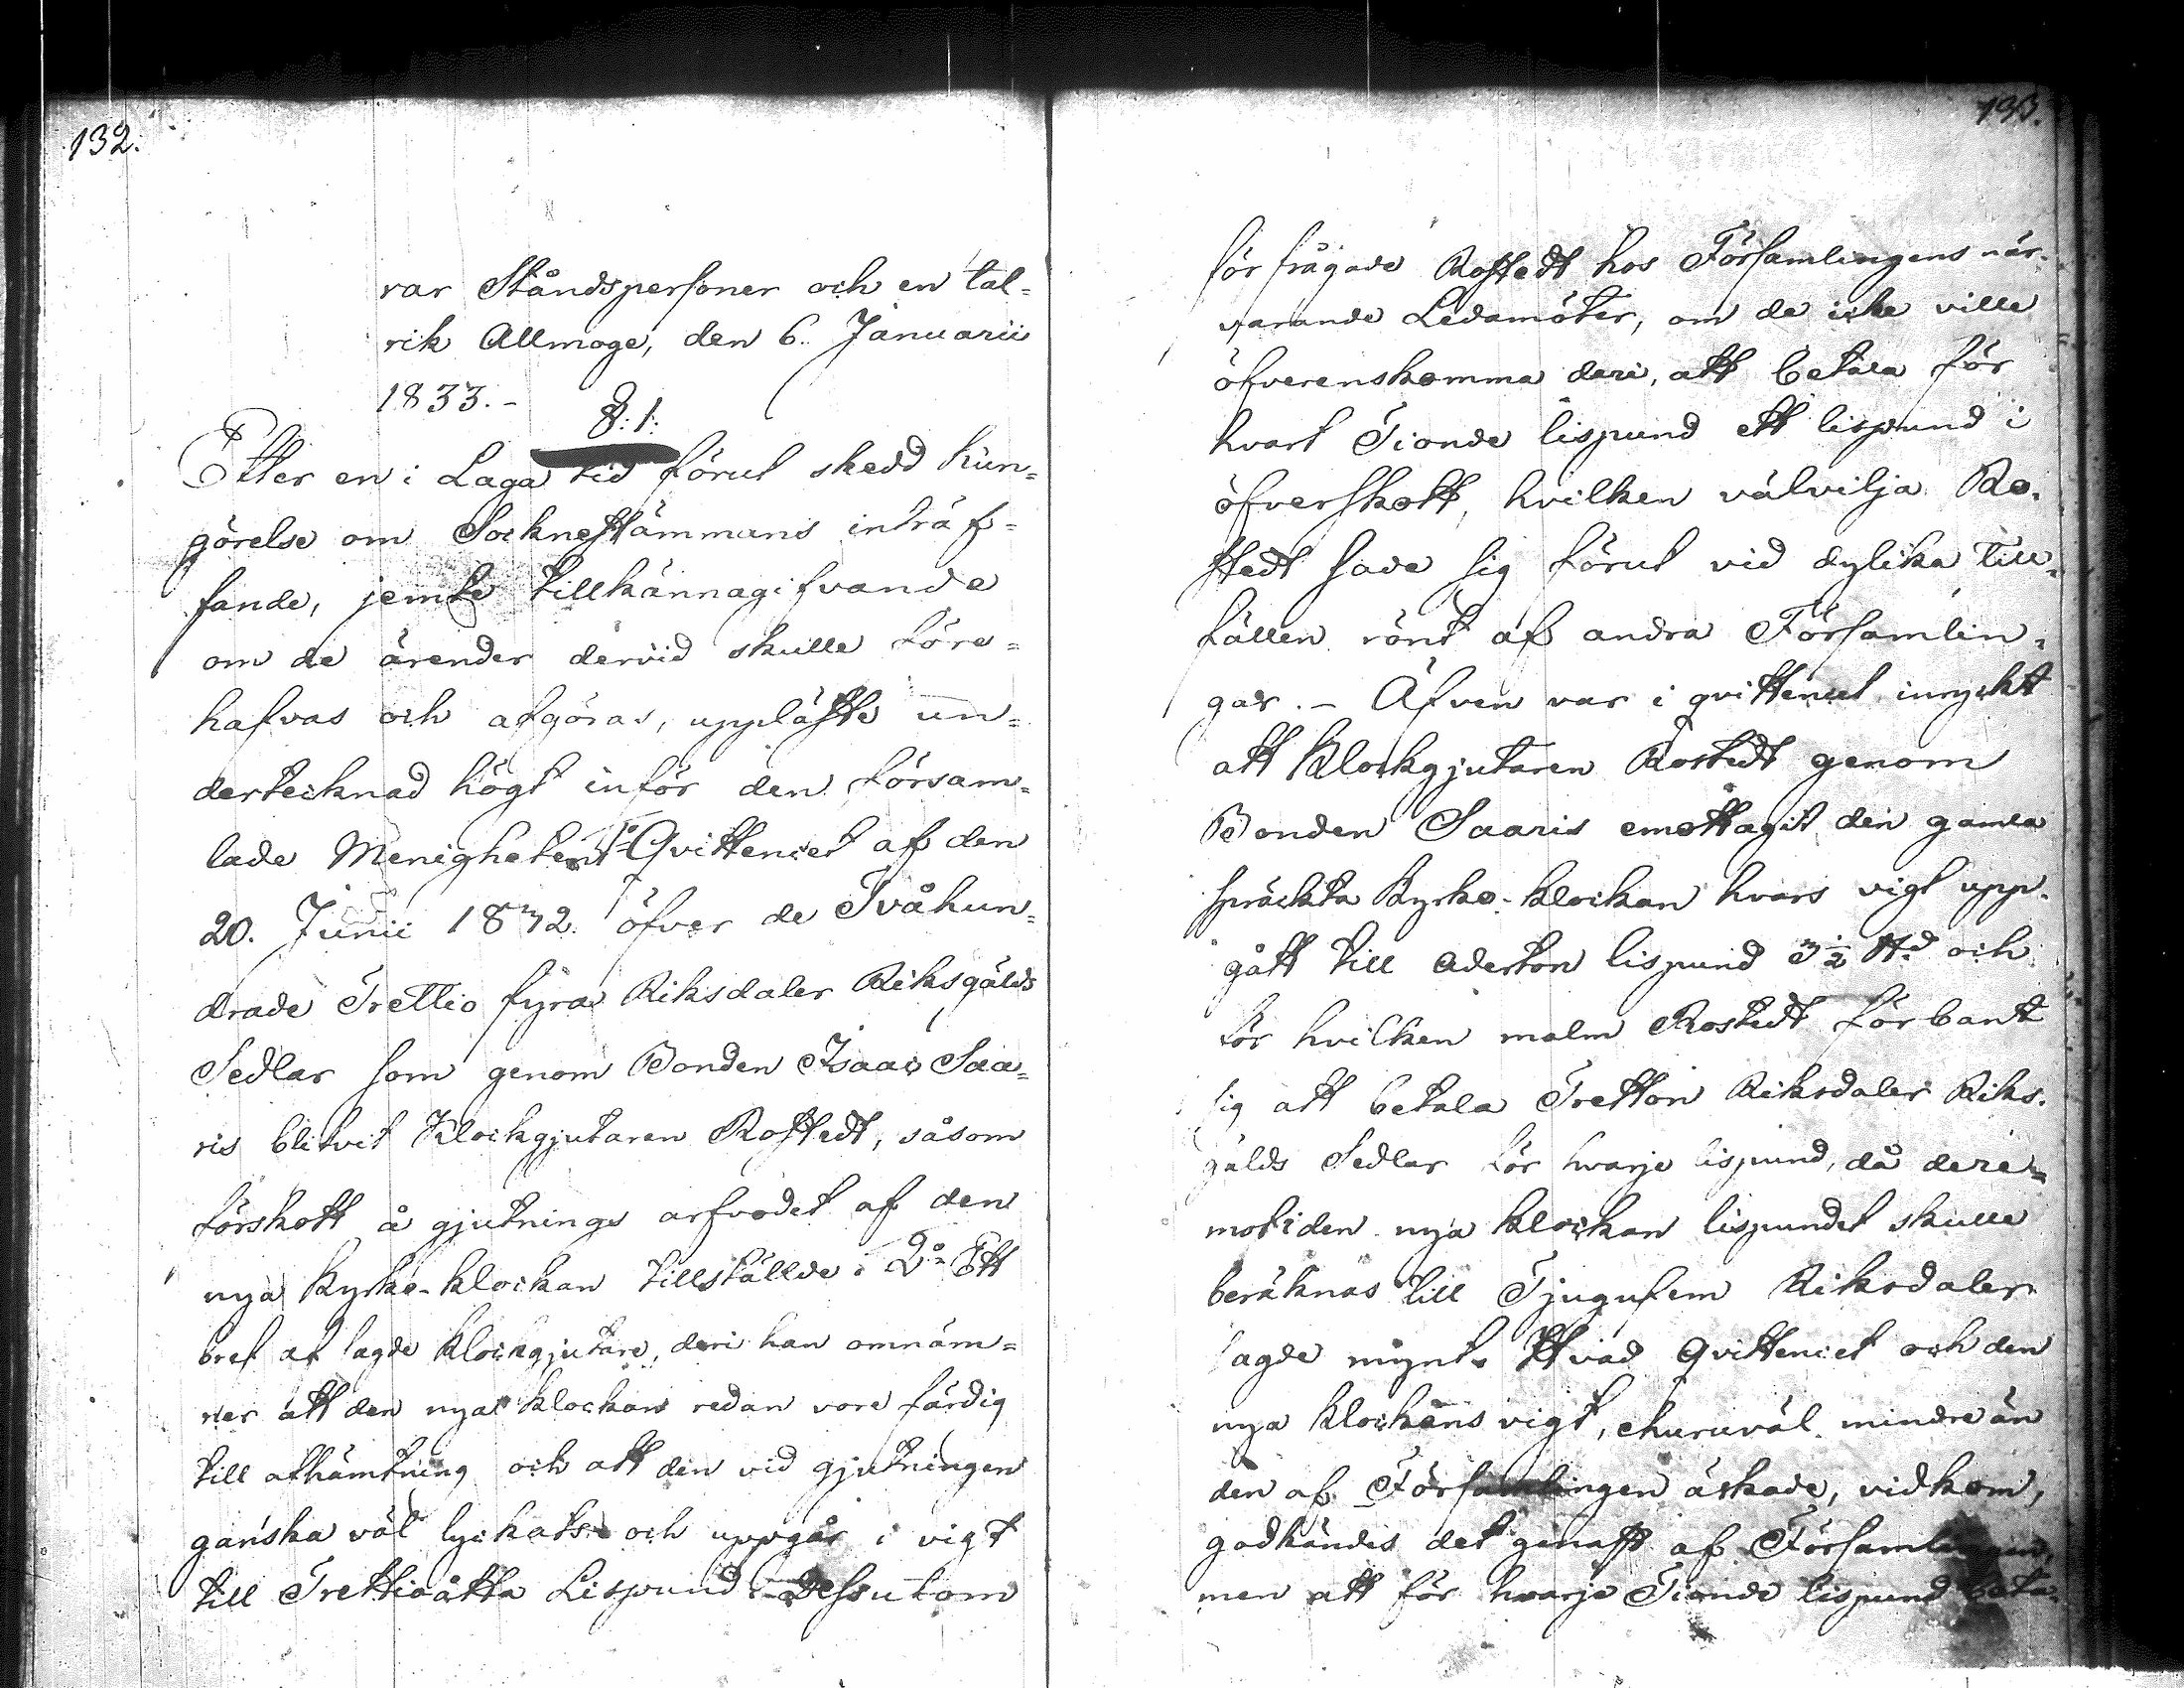 132.
rar Ståndspersoner och en tal=
rik Allmoge, den 6. Januarii
1833.-
§: 1:
Efter en i Laga tid förut skedd kun=
görelse om Socknestämmans inträf=
fande, jemte tillkännagifvande
om de ärender dervid skulle före=
hafvas och afgöras, uppläste un=
dertecknad högt inför den försam=
lade Menigheten 1o Qvittencet af den
20. Junii 1832. öfver de Tvåhun=
drade Trettio fyra Riksdaler Riksgälds
Sedlar som genom Bonden Isaac Saa=
ris blifvit Klockgjutaren Rostedt, såsom
förskott å gjutnings arfvodet af den
nya Kyrko-klockan tillställde: 2o Ett
bref af sagde Klockgjutare, deri han omnäm=
ner att den nya klockan redan vore färdig
till afhämtning och att den vid gjutningen
ganska väl lyckats och uppgår i vigt
till Trettioåtta Lispund. Dessutom
133.
förfrågade Rostedt hos Församlingens när-
varande Ledamöter, om de icke ville
öfverenskomma deri, att betala för
hvart Tionde lispund ett lispund i
öfverskott, hvilken välvilja Ro-
stedt sade sig förut vid dylika till-
fällen rönt af andra Församlin-
gar. - Äfven var i qvittencet inryckt
att Klockgjutaren Rostedt genom
Bonden Saaris emottagit den gamla
spräckta Kyrko-klockan hvars vigt upp-
gått till aderton lispund 3 1/2 ℔d och
för hvilken malm Rostedt förbant
sig att betala Tretton Riksdaler Riks-
gälds Sedlar för hvarje lispund, då dere=
mot i den nya klockan lispundet skulle
beräknas till Tjugufem Riksdaler
sagde mynt. Hvad Qvittencet och den
nya klockans vigt, ehuruväl mindre än
den af Församlingen äskade, vidkom,
godkändes det genast af Församlingen,
men att för hvarje Tionde lispund beta-